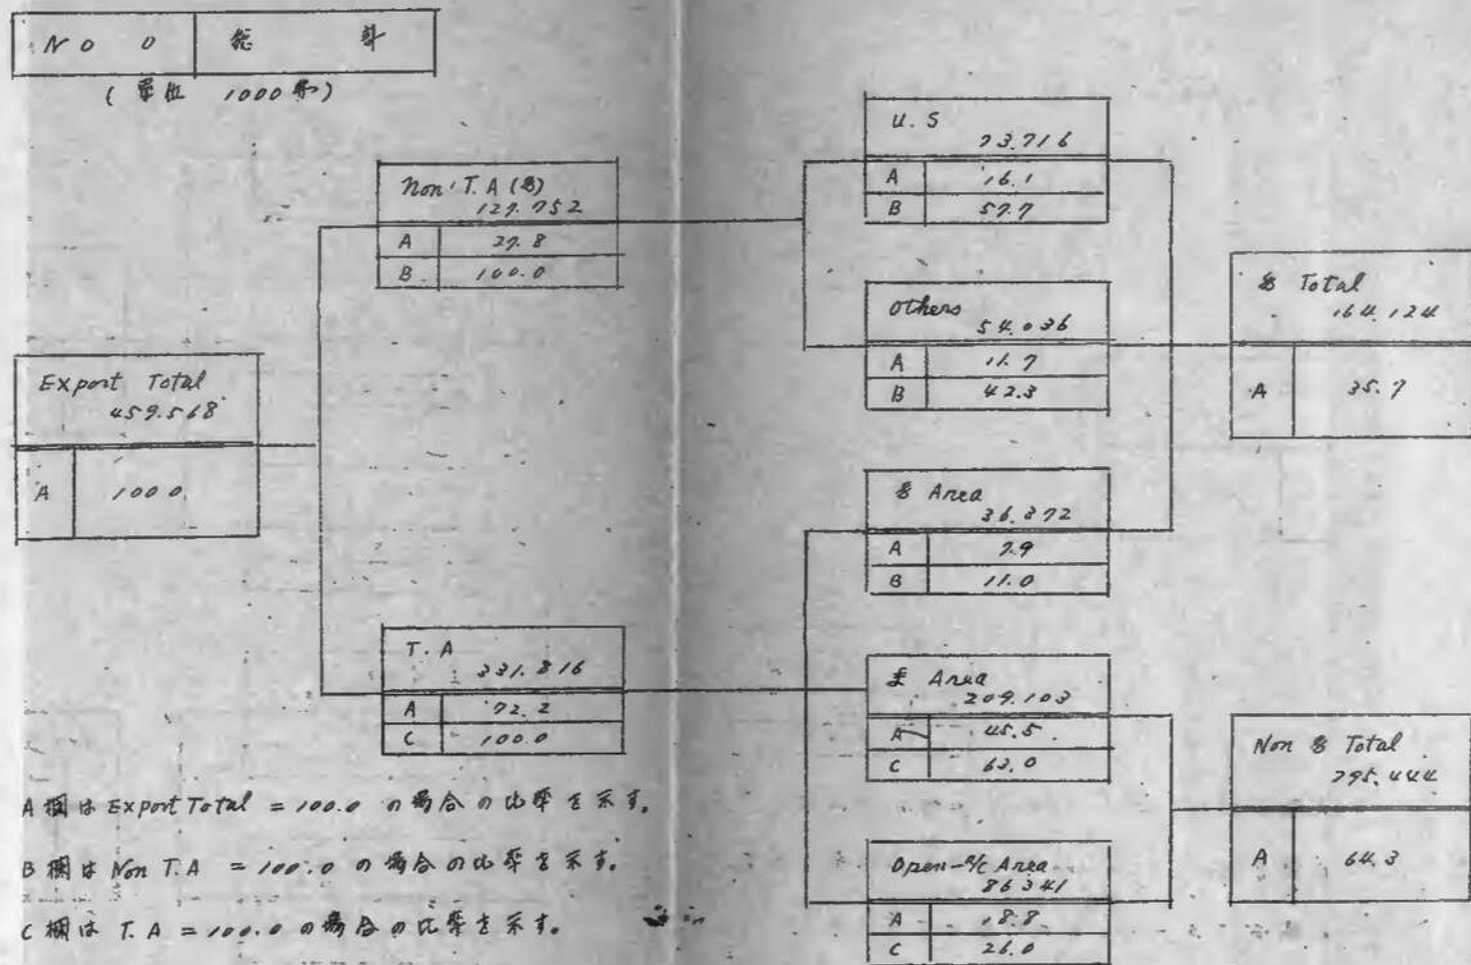 NO 0 総計
(単位 1000弗)
Export Total
459.568
A 100.0
Non T.A ($)
127.752
A 27.8
B 100.0
T.A
331.816
A 72.2
C 100.0
U.S
73.716
A 16.1
B 57.7
Others
54.036
A 11.7
B 42.3
$ Area
36.372
A 7.9
B 11.0
£ Area
209.103
A 45.5
C 63.0
Open-a/c Area
86341
A 18.8
C 26.0
$ Total
164.124
A 35.7
Non $ Total
295.444
A 64.3
A欄は Export Total = 100.0 の場合の比率を示す。
B欄は Non T.A = 100.0 の場合の比率を示す。
C欄は T.A = 100.0 の場合の比率を示す。